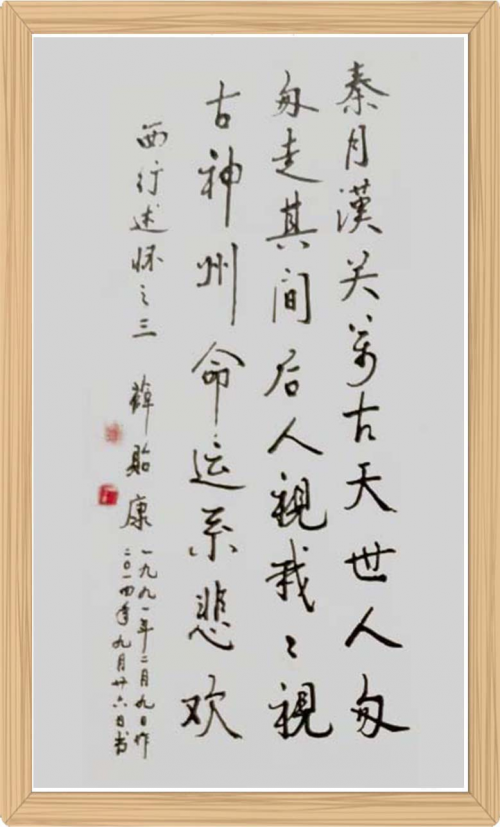 秦月漢关萬古天世人匆
匆走其间后人視我々視
古神州命运系悲欢
西行述怀之三 薛貽康
一九九一年二月九日作
二〇一四年九月廿六日书